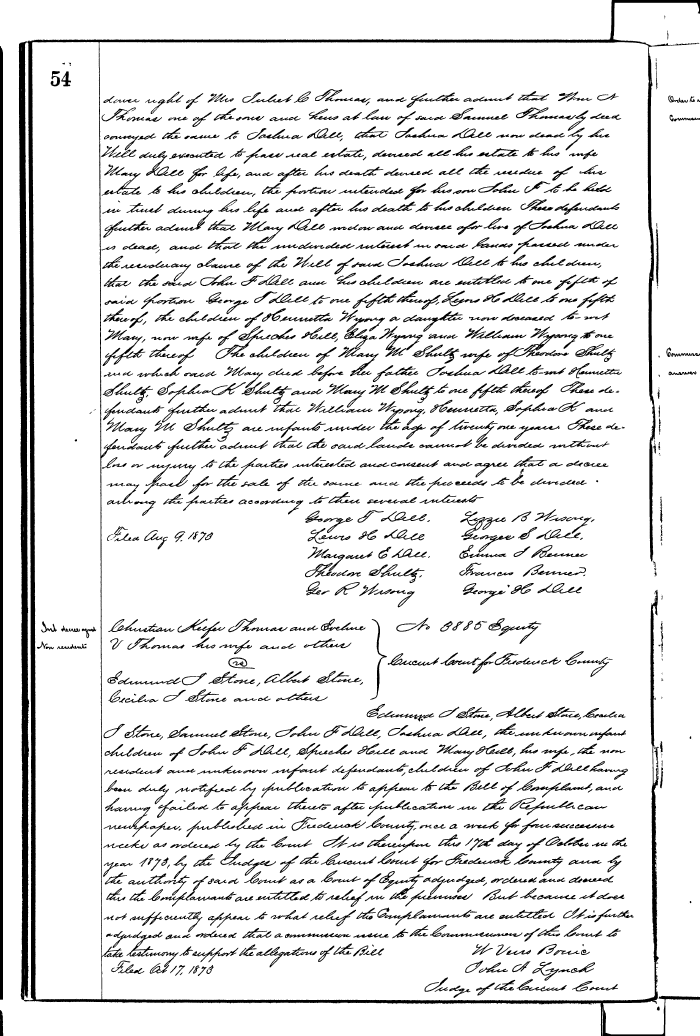 54
dower right of Mrs Juliet C Thomas, and further admit that Wm H
Thomas one of the sons and heirs at law of said Samuel Thomas by deed
conveyed the same to Joshua Dill, that Joshua Dill now dead by his
Will duly executed to pass real estate, devised all his estate to his wife
Mary Dill for life, and after his death devised all the residue of his
estate to his children, the portion intended for his son John F to be held
in trust during his life and after his death to his children These defendants
further admit that Mary Dill widow and devisee for live of Joshua Dill
is dead, and that the undivided interest in said lands passed under
the residuary clause of the Will of said Joshua Dill to his children,
that the said John F Dill and his children are entitled to one fifth of
said portion George T Dill to one fifth thereof, Lewis H Dill to one fifth
thereof, the children of Henrietta Wysong a daughter now deceased to wit
Mary, now wife of Speches Hill, Eliza Wysong and William Wysong to one
fifth thereof The children of Mary M Shultz wife of Theodore Shultz
and which said Mary died before her father Joshua Dill to wit Henrietta
Shultz, Sophia K Shultz and Mary M Shultz to one fifth thereof These de-
fendants further admit that William Wysong, Henrietta, Sophia K and
Mary M Shultz are infants under the age of twenty one years These de-
fendants further admit that the said lands cannot be divided without
loss or injury to the parties interested and consent and agree that a decree
may pass for the sale of the same and the proceeds to be divided
among the parties according to their several interests
George T Dill. Lizzie B Wisong.
Filed Aug 9. 1873 Lewis H Dill Georger S Dill.
Margaret E Dill. Emma J Benner
Theodore Shultz. Francis Benner.
Geo R Wisong George H Dill
Int decree agst
Non residents
Christian Keefer Thomas and Eveline
V Thomas his wife and others
vs
Edmund J Stone, Albert Stone,
Cecilia J Stone and others
No 3885 Equity
Circuit Court for Frederick County
Edmund J Stone, Albert Stone, Cecilia
J Stone, Samuel Stone, John F Dill, Joshua Dill, the unknown infant
children of John F Dill, Speches Hill and Mary Hill, his wife, the non
resident and unknown infant defendants, children of John F Dill having
been duly notified by publication to appear to the Bill of Complaint, and
having failed to appear thereto after publication in the Republican
newspaper, published in Frederick County, once a week for four successive
weeks as ordered by the Court It is thereupon this 17th day of October in the
year 1873, by the Judges of the Circuit Court for Frederick County and by
the authority of said Court as a Court of Equity adjudged, ordered and decreed
that the Complainants are entitled to relief in the premises But because it does
not sufficiently appear to what relief the Complainants are entitled It is further
adjudged and ordered that a commission issue to the Commissioners of this Court to
take testimony to support the allegations of the Bill
Filed Oct 17. 1873
W Veirs Bouic
John A Lynch
Judge of the Circuit Court